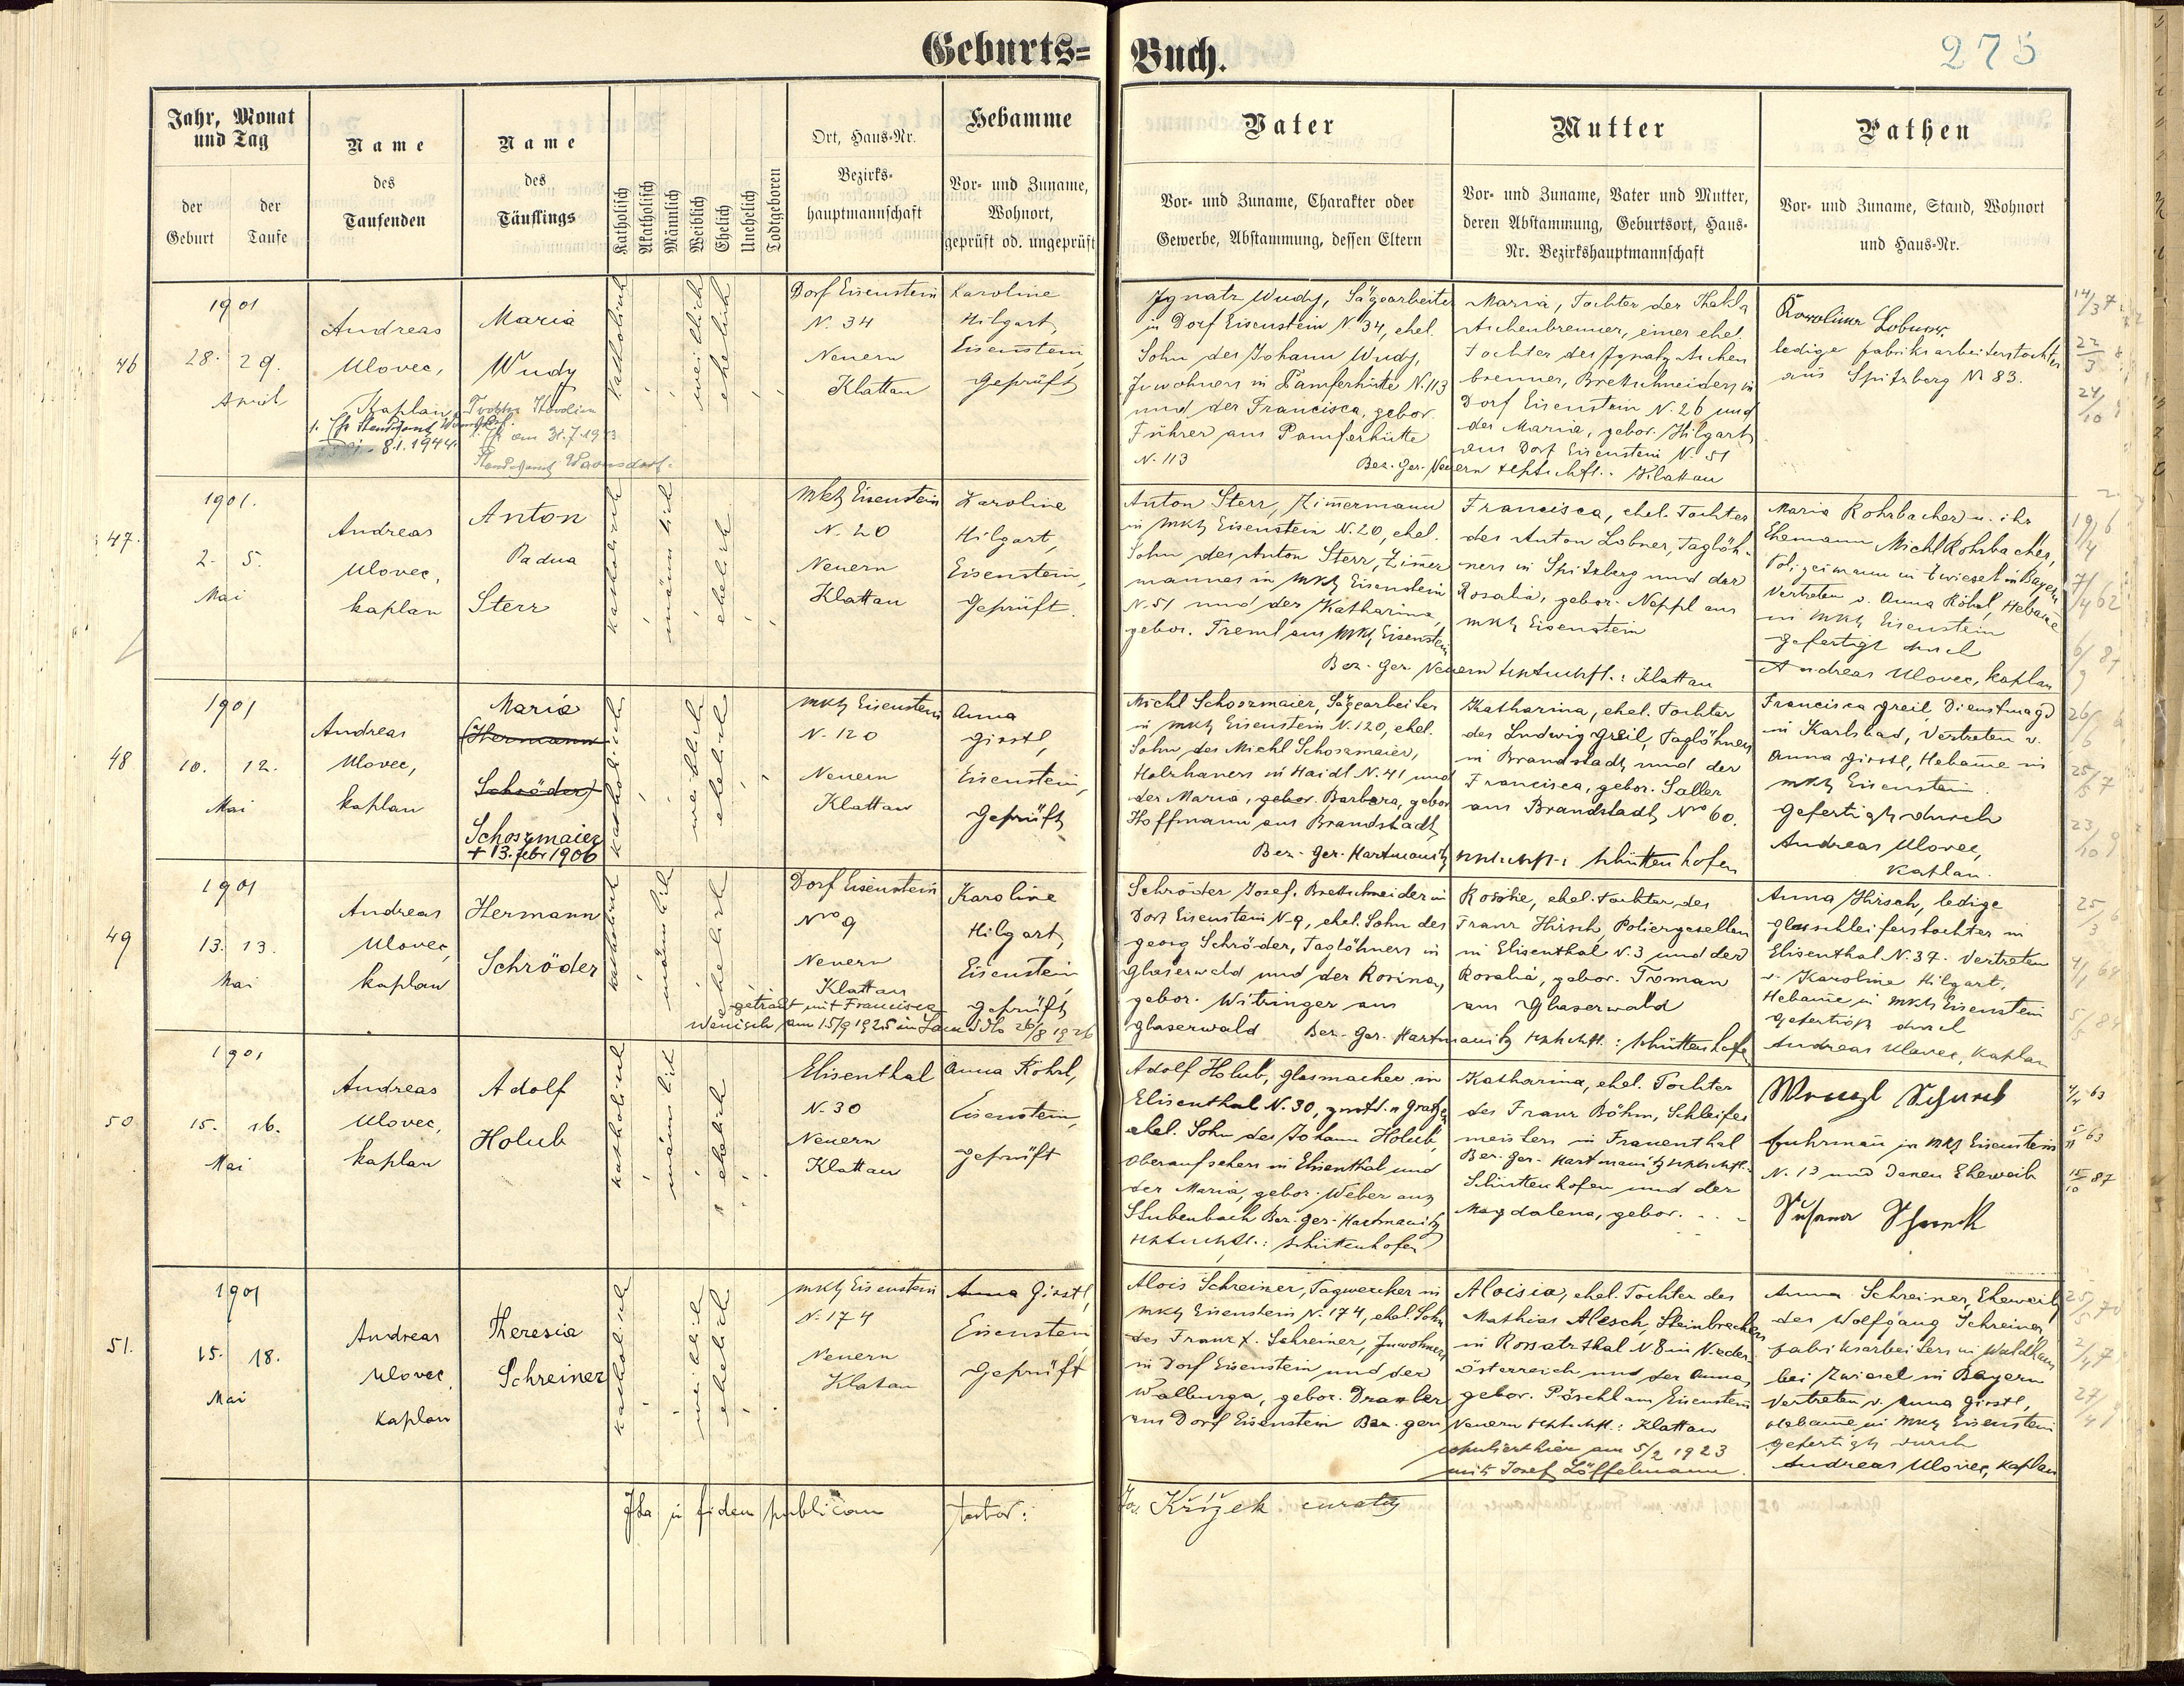 Geburts=
Buch.
275
Jahr, Monat
und Tag
der
Geburt
der
Taufe
Name
des
Taufenden
Name
des
Täuflings
Katholisch
Akatholisch
Männlich
Weiblich
Ehelich
Unehelich
Todtgeboren
Ort, Haus-Nr.
Bezirks-
hauptmannschaft
Hebamme
Vor- und Zuname,
Wohnort,
geprüft od. ungeprüft
Vater
Vor- und Zuname, Charakter oder
Gewerbe, Abstammung, dessen Eltern
Mutter
Vor- und Zuname, Vater und Mutter,
deren Abstammung, Geburtsort, Haus-
Nr. Bezirkshauptmannschaft
Pathen
Vor- und Zuname, Stand, Wohnort
und Haus-Nr.
46
1901
28. 29.
April
Andreas
Ulovec,
Kaplan
8.1.1944
Maria
Wudy
am 31.7.1943
Standesamt Warnsdorf
katholisch
weiblich
ehelich
Dorf Eisenstein
N. 34
Neuern
Klattau
Karoline
Hilgart,
Eisenstein,
Geprüft
Ignatz Wudy, Sägearbeiter
in Dorf Eisenstein N 34, ehel.
Sohn des Johann Wudy,
Inwohners in Pamferhütte N. 113
und der Francisca, gebor.
Führer aus Pamferhütte
N. 113
Maria, Tochter der Thekla
Aschenbrenner, einer ehel.
Tochter des Ignatz Aschen
brenner, Brettschneiders in
Dorf Eisenstein N. 26 und
der Maria, gebor. Hilgart
aus Dorf Eisenstein N. 51
Bez. Ger. Neuern Hptschft.: Klattau
Karolina Lobner
ledige Fabriksarbeiterstochter
aus Spitzberg N 83.
47.
1901.
2. 5.
Mai
Andreas
Ulovec,
kaplan
Anton
Padua
Sterr
katholisch
männlich
ehelich
Mkt Eisenstein
N. 20
Neuern
Klattau
Karoline
Hilgart,
Eisenstein,
Geprüft.
Anton Sterr, Zimmermann
in Mkt Eisenstein N. 20, ehel.
Sohn des Anton Sterr, Zimmer
mannes in Mkt Eisenstein
N. 51 und der Katharina,
gebor. Treml aus Mkt Eisenstein
Francisca, ehel. Tochter
des Anton Lobner, Taglöh-
ners in Spitzberg und der
Rosalia, gebor. Neppl aus
Mkt Eisenstein
Bez. Ger. Neuern Hptschft.: Klattau
Maria Rohrbacher u. ihr
Ehemann Michl Rohrbacher,
Polizeimann in Zwiesel in Bayern
Vertreten v. Anna Röhrl, Hebame
in Mkt Eisenstein
gefertigt durch
Andreas Ulovec, kaplan
48
1901
10. 12.
Mai
Andreas
Ulovec,
kaplan
Maria
(Hermann
Schröder)
Schoszmaier
+ 13. febr 1906
katholisch
weiblich
ehelich
Mkt Eisenstein
N. 120
Neuern
Klattau
Anna
Girstl,
Eisenstein,
Geprüft
Michl Schoszmaier, Sägearbeiter
in Mkt Eisenstein N. 120, ehel.
Sohn des Michl Schoszmaier,
Holzhauers in Haidl N. 41 und
der Maria, gebor. Barbara, gebor
Hoffmann aus Brandstadt
Katharina, ehel. Tochter
des Ludwig Greil, Taglöhners
in Brandstadt und der
Francisca, gebor. Saller
aus Brandstadt Nro 60.
Bez. Ger. Hartmanitz Hptschft.: Schüttenhofen
Francisca Greil, Dienstmagd
in Karlsbad, Vertreten v.
Anna Girstl, Hebame in
Mkt Eisenstein.
Gefertigt durch
Andreas Ulovec,
Kaplan.
49
1901
13. 13.
Mai
Andreas
Ulovec,
kaplan
Hermann
Schröder
katholisch
männlich
ehelich
Dorf Eisenstein
Nro 9
Neuern
Klattau
Karoline
Hilgart,
Eisenstein,
geprüft
getraut mit Francisca
Wenisch am 15/9 1925 in
Schröder Josef, Brettschneider in
Dorf Eisenstein N. 9, ehel. Sohn des
Georg Schröder, Taglöhners in
Glaserwald und der Rosina,
gebor. Witzinger aus
Glaserwald
Rosine, ehel. Tochter des
Franz Hirsch, Poliergesellen
in Elisenthal N. 3 und der
Rosalia, gebor. Troman
aus Glaserwald
Bez. Ger. Hartmanitz Hptschft.: Schüttenhofen
Anna Hirsch, ledige
Glasschleiferstochter in
Elisenthal N. 37. Vertreten
v. Karoline Hilgart,
Hebame in Mkt Eisenstein
Gefertigt durch
Andreas Ulovec, Kaplan
50
1901
15. 16.
Mai
Andreas
Ulovec,
kaplan
Adolf
Holub
katholisch
männlich
ehelich
Elisenthal
N. 30
Neuern
Klattau
Anna Röhrl,
Eisenstein,
geprüft
Adolf Holub, Glasmacher in
Elisenthal N. 30,
ehel. Sohn des Johann Holub,
Oberaufsehers in Elisenthal und
der Maria, gebor. Weber aus
Stubenbach Bez. Ger. Hartmanitz
Hptschft.: Schüttenhofen
Katharina, ehel. Tochter
des Franz Böhm, Schleifer
meisters in Frauenthal
Bez. Ger. Hartmanitz Hptschft.
Schüttenhofen und der
Magdalena, gebor. . . .
Wenzl Schreck
Fuhrman in Mkt Eisenstein
N. 13 und dessen Eheweib
Susanna Schreck
51.
1901
15. 18.
Mai
Andreas
Ulovec,
Kaplan
Theresia
Schreiner
katholisch
weiblich
ehelich
Mkt Eisenstein
N. 174
Neuern
Klatau
Anna Girstl,
Eisenstein
Geprüft
Alois Schreiner, Tagwerker in
Mkt Eisenstein N. 174, ehel. Sohn
des Franz X. Schreiner, Inwohners
in Dorf Eisenstein und der
Walburga, gebor. Draxler
aus Dorf Eisenstein
Aloisia, ehel. Tochter des
Mathias Alesch, Steinbrechers
in Rossatzthal N 8 in Nieder-
Österreich und der Anna,
gebor. Pöschl aus Eisenstein
Bez. Ger. Neuern Hptschft.: Klattau
copuliert hier am 5/2 1923
mit Josef Löffelmann.
Anna Schreiner, Eheweib
des Wolfgang Schreiner,
Fabriksarbeiters in Waldhaus
bei Zwiesel in Bayern
Vertreten v. Anna Girstl,
Hebame in Mkt Eisenstein
gefertigt durch
Andreas Ulovec, kaplan
Ita in fidem publicam
testor:
Jos. Křížek curatus